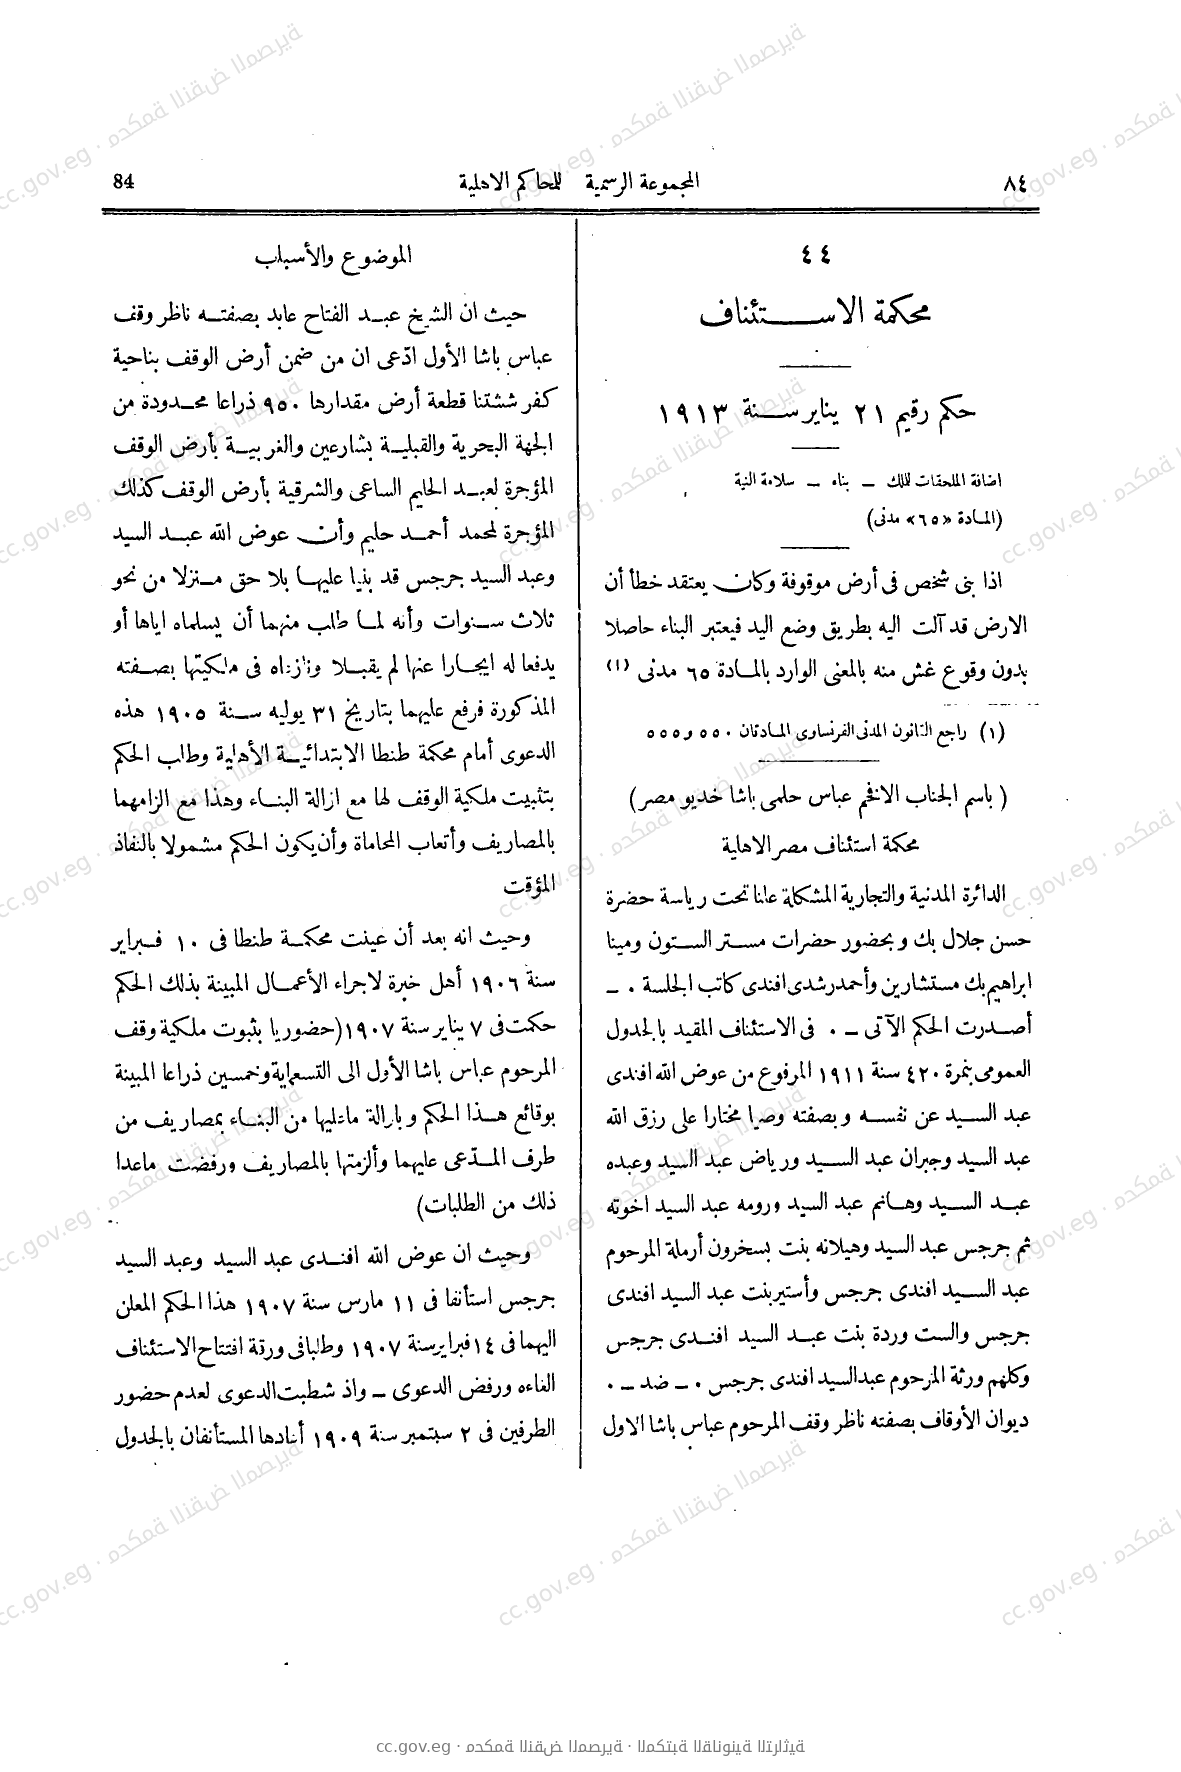 ٨٤ المجموعة الرسمية للمحاكم الاهلية 84
٤٤
محكمة الاستئناف
حكم رقيم ٢١ يناير سنة ١٩١٣
اضافة الملحقات للملك – بناء – سلامة النية
(المادة «٦٥» مدنى)
اذا بنى شخص فى أرض موقوفة وكان يعتقد خطأ أن
الارض قد آلت اليه بطريق وضع اليد فيعتبر البناء حاصلا
بدون وقوع غش منه بالمعنى الوارد بالمادة ٦٥ مدنى (١)
(١) راجع القانون المدنى الفرنساوى المادتان ٥٥٠ و٥٥٥
( باسم الجناب الافخم عباس حلمى باشا خديو مصر)
محكمة استئناف مصر الاهلية
الدائرة المدنية والتجارية المشكلة علنا تحت رياسة حضرة
حسن جلال بك وبحضور حضرات مستر الستون ومينا
ابراهيم بك مستشارين وأحمد رشدى افندى كاتب الجلسة ٠ –
أصدرت الحكم الآتى – ٠ فى الاستئناف المقيد بالجدول
العمومى بنمرة ٤٢٠ سنة ١٩١١ المرفوع من عوض الله افندى
عبد السيد عن نفسه وبصفته وصيا مختارا على رزق الله
عبد السيد وجبران عبد السيد ورياض عبد السيد وعبده
عبد السيد وهانم عبد السيد ورومه عبد السيد اخوته
ثم جرجس عبد السيد وهيلانه بنت بسخرون أرملة المرحوم
عبد السيد افندى جرجس وأستير بنت عبد السيد افندى
جرجس والست وردة بنت عبد السيد افندى جرجس
وكلهم ورثة المرحوم عبد السيد افندى جرجس ٠ – ضد – ٠
ديوان الأوقاف بصفته ناظر وقف المرحوم عباس باشا الاول
الموضوع والأسباب
حيث ان الشيخ عبد الفتاح عابد بصفته ناظر وقف
عباس باشا الأول ادّعى ان من ضمن أرض الوقف بناحية
كفر ششتا قطعة أرض مقدارها ٩٥٠ ذراعا محدودة من
الجهة البحرية والقبلية بشارعين والغربية بأرض الوقف
المؤجرة لعبد الحليم الساعى والشرقية بأرض الوقف كذلك
المؤجرة لمحمد أحمد حليم وأن عوض الله عبد السيد
وعبد السيد جرجس قد بنيا عليها بلا حق منزلا من نحو
ثلاث سنوات وأنه لما طلب منهما أن يسلماه اياها أو
يدفعا له ايجارا عنها لم يقبلا ونازعاه فى ملكيتها بصفته
المذكورة فرفع عليهما بتاريخ ٣١ يوليه سنة ١٩٠٥ هذه
الدعوى أمام محكمة طنطا الابتدائية الأهلية وطلب الحكم
بتثبيت ملكية الوقف لها مع ازالة البناء وهذا مع الزامهما
بالمصاريف وأتعاب المحاماة وأن يكون الحكم مشمولا بالنفاذ
المؤقت
وحيث انه بعد أن عينت محكمة طنطا فى ١٠ فبراير
سنة ١٩٠٦ أهل خبرة لاجراء الأعمال المبينة بذلك الحكم
حكمت فى ٧ يناير سنة ١٩٠٧ (حضوريا بثبوت ملكية وقف
المرحوم عباس باشا الأول الى التسعماية وخمسين ذراعا المبينة
بوقائع هذا الحكم وبازالة ما عليها من البناء بمصاريف من
طرف المدّعى عليهما وألزمتها بالمصاريف ورفضت ماعدا
ذلك من الطلبات)
وحيث ان عوض الله افندى عبد السيد وعبد السيد
جرجس استأنفا فى ١١ مارس سنة ١٩٠٧ هذا الحكم المعلن
اليهما فى ١٤ فبراير سنة ١٩٠٧ وطلبا فى ورقة افتتاح الاستئناف
الغاءه ورفض الدعوى – واذ شطبت الدعوى لعدم حضور
الطرفين فى ٢ سبتمبر سنة ١٩٠٩ أعادها المستأنفان بالجدول
cc.gov.eg · محكمة النقض المصرية · المكتبة القانونية التراثية